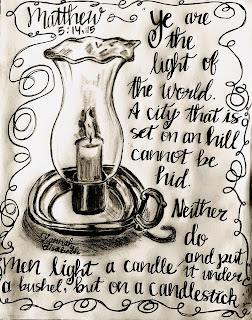 Matthew
5:14,15
"Ye are
the
light of
the world.
A city that is
set on an hill
cannot be
hid.
Neither
do
Men light a candle and put it under
a bushel, but on a candlestick
Hannah
Elizabeth